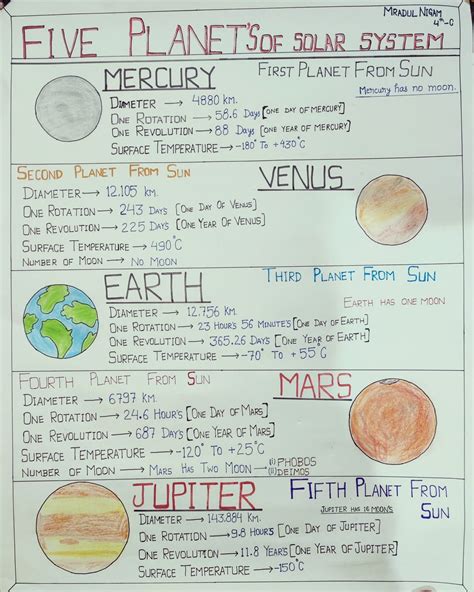 Mradul Nigam
4th-C
Five Planet's of solar system
Mercury
First Planet From Sun
Mercury has no moon.
Diameter → 4880 km.
One Rotation → 58.6 Days [one day of mercury]
One Revolution → 88 Days [one year of mercury]
Surface Temperature → -180° to +430°C
Second Planet From Sun
Venus
Diameter → 12.105 km.
One Rotation → 243 Days [One Day Of Venus]
One Revolution → 225 Days [One Year Of Venus]
Surface Temperature → 490°C
Number of Moon → No Moon
Earth
Third Planet From Sun
Earth has one moon
Diameter → 12.756 km.
One Rotation → 23 Hours 56 Minute's [One Day of Earth]
One Revolution → 365.26 Days [One Year of Earth]
Surface Temperature → -70° To +55°C
Fourth Planet From Sun
Mars
Diameter → 6797 km.
One Rotation → 24.6 Hour's [One Day of Mars]
One Revolution → 687 Day's [One Year of Mars]
Surface Temperature → -120° To +25°C
Number of Moon → Mars Has Two Moon → (i) Phobos
(ii) Deimos
Jupiter
Fifth Planet From
Sun
Jupiter has 16 moon's
Diameter → 143.884 km.
One Rotation → 9.8 Hours [One Day of Jupiter]
One Revolution → 11.8 Years [One Year of Jupiter]
Surface Temperature → -150°C